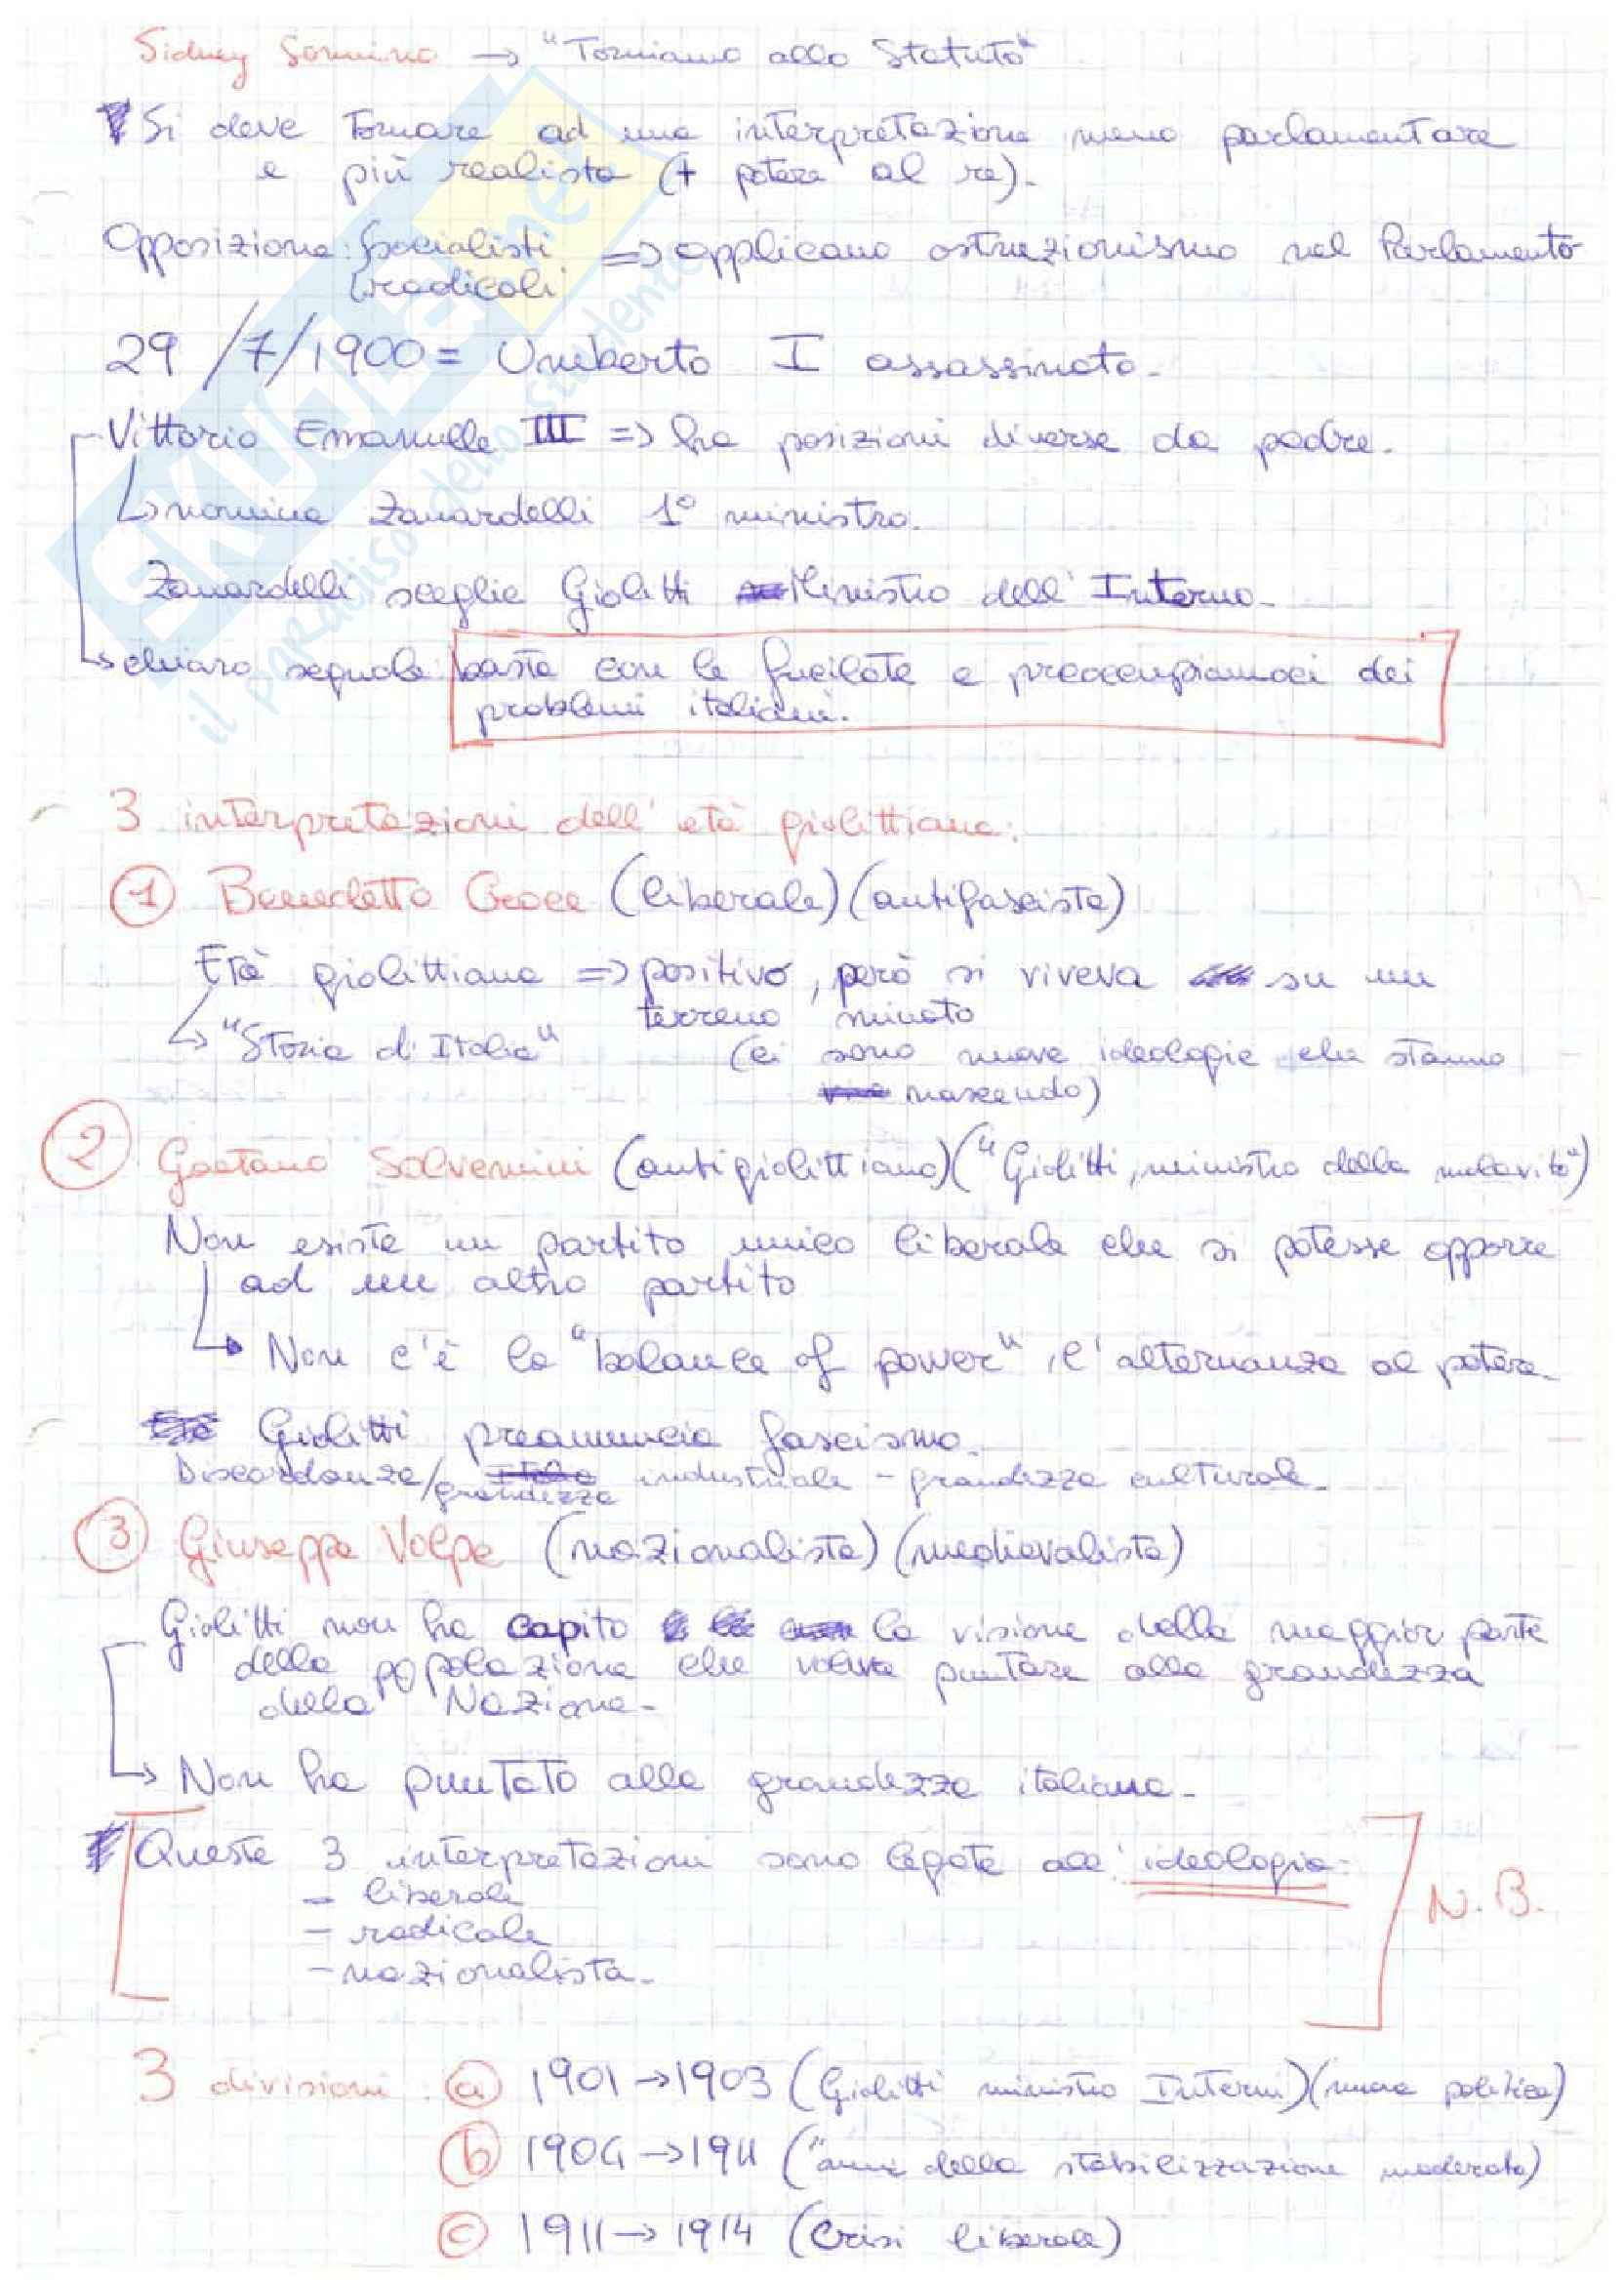 Sidney Sonnino → "Torniamo allo Statuto"
Si deve tornare ad una interpretazione meno parlamentare
e più realista (+ potere al re).
Opposizione: socialisti => applicano ostruzionismo nel Parlamento
radicali
29/7/1900 = Umberto I assassinato.
Vittorio Emanuele III => ha posizioni diverse da padre.
↳ nomina Zanardelli 1° ministro.
Zanardelli sceglie Giolitti Ministro dell'Interno.
↳ chiaro segnale: basta con le fucilate e preoccupiamoci dei
problemi italiani.
3 interpretazioni dell'età giolittiana:
1 Benedetto Croce (liberale) (antifascista)
Età giolittiana => positivo, però si viveva su un
terreno minato
↳ "Storia di Italia" (ci sono nuove ideologie che stanno
nascendo)
2 Gaetano Salvemini (antigiolittiano) ("Giolitti, ministro della malavita")
Non esiste un partito unico liberale che si potesse opporre
ad un altro partito
↳ Non c'è la "balance of power", l'alternanza al potere.
Giolitti preannuncia fascismo.
Discordanza/grandezza industriale - grandezza culturale.
3 Giuseppe Volpe (nazionalista) (medievalista)
Giolitti non ha capito la visione della maggior parte
della popolazione che voleva puntare alla grandezza
della Nazione.
↳ Non ha puntato alla grandezza italiana.
Queste 3 interpretazioni sono legate all'ideologia:
- liberale
- radicale
- nazionalista.
N.B.
3 divisioni: a 1901 → 1903 (Giolitti ministro Interni) (nuova politica)
b 1904 → 1911 ("anni della stabilizzazione moderata)
c 1911 → 1914 (Crisi liberale)
SKUOLA.net
il paradiso dello studente